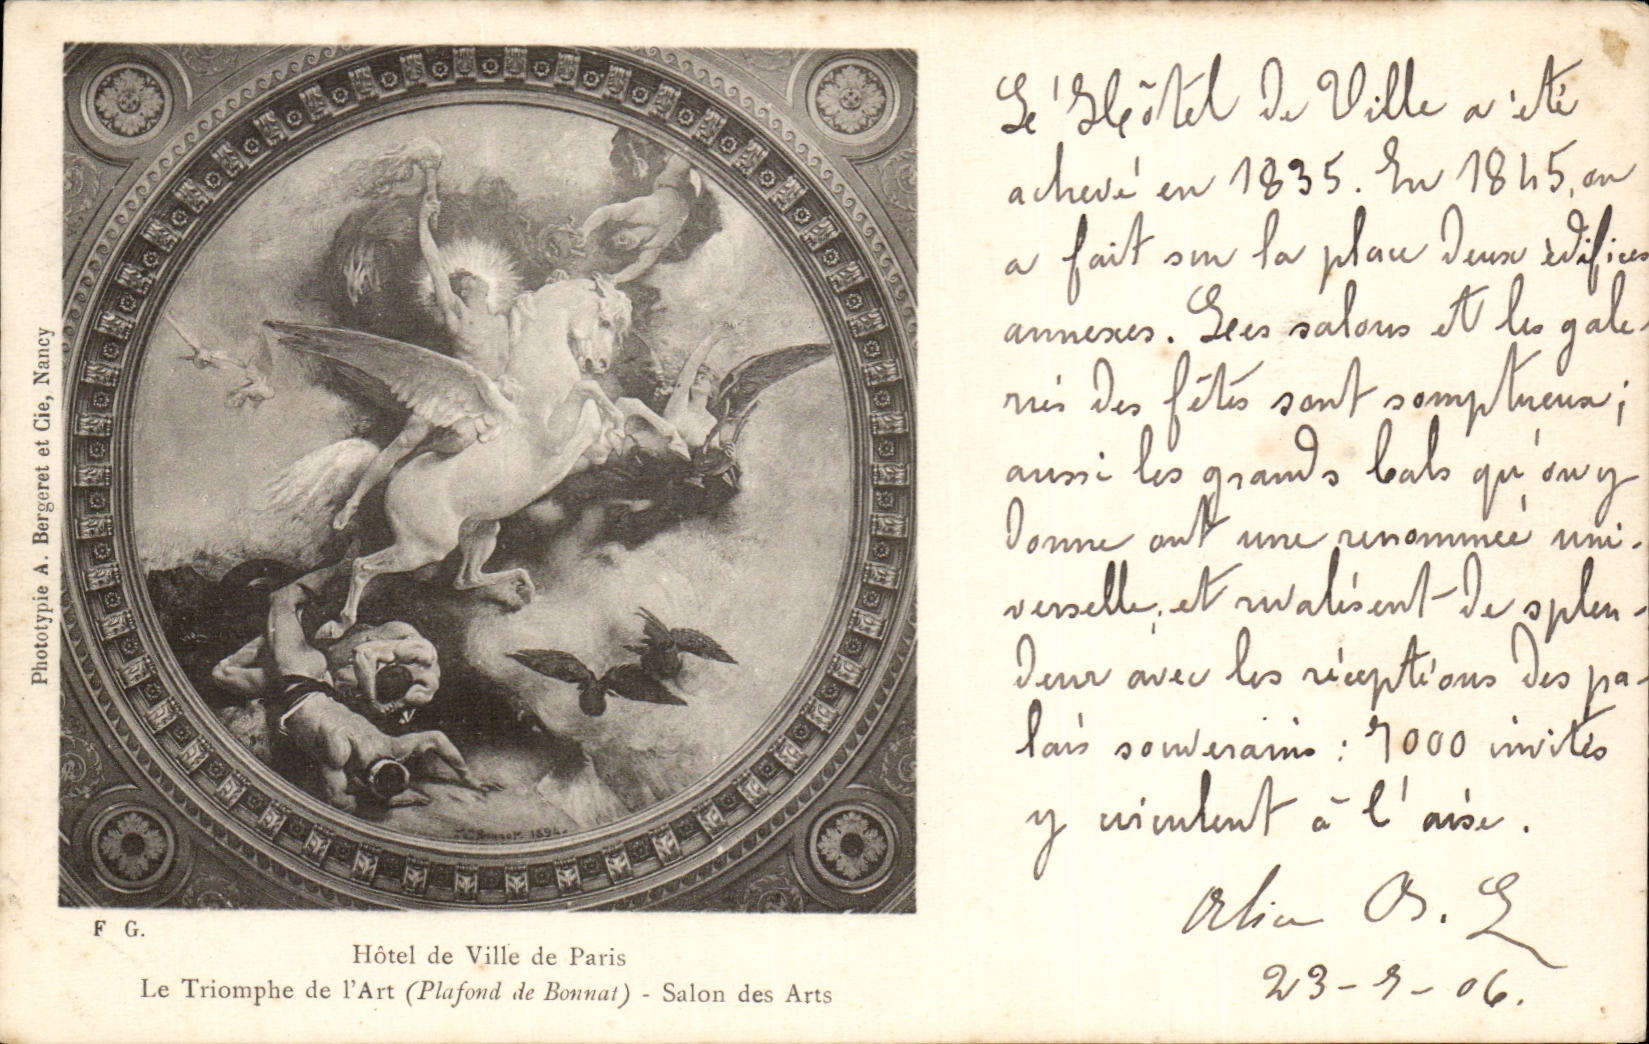 Phototypie A. Bergeret et Cie, Nancy
Bonnat. 1894.
F G.
Hôtel de Ville de Paris
Le Triomphe de l'Art (Plafond de Bonnat) - Salon des Arts
Le' Hôtel de Ville a été
achevé en 1835. En 1845, on
a fait sur la place deux édifices
annexes. Les salons et les gale-
ries des fêtes sont somptueux ;
aussi les grands bals qu'on y
donne ont une renommée uni-
verselle, et rivalisent de splen-
deur avec les réceptions des pa-
lais souverains : 7000 invités
y circulent à l'aise.
Alice B. L
23-7-06.